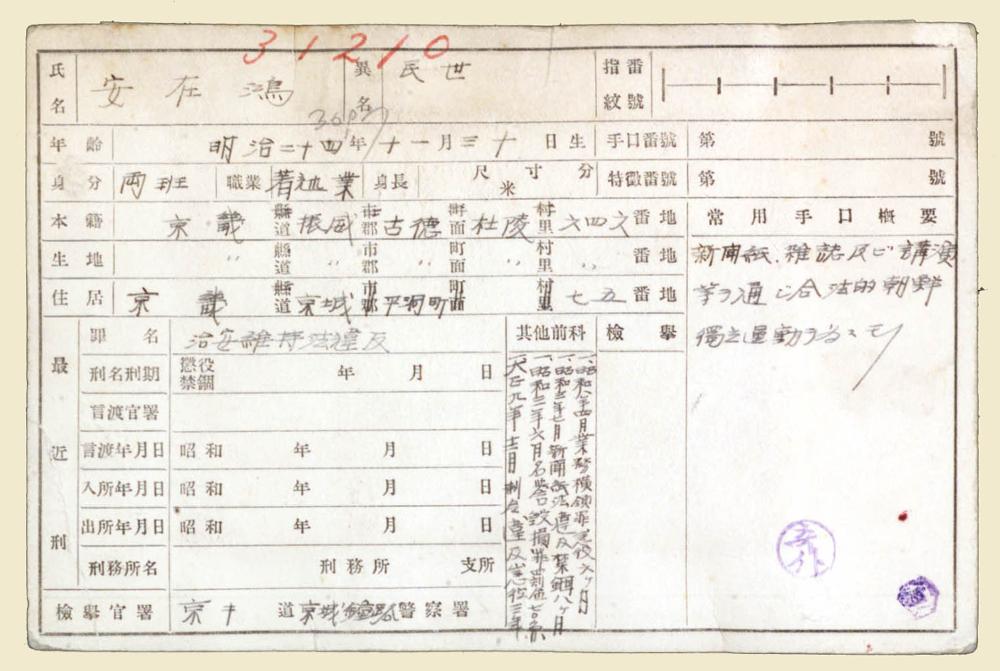 31210
氏名 安在鴻 異名 民世 指紋番號
年齡 明治二十四年十一月三十日生 手口番號 第 號
身分 両班 職業 著述業 身長 尺寸分 米 特徴番號 第 號
本籍 京畿 縣道 振威 市郡 古德 町面 杜陵 村里 六四六 番地
生地 〃 縣道 〃 市郡 〃 町面 〃 村里 〃 番地
住居 京畿 縣道 京城 市郡 平洞町 町面 村里 七五 番地
常用手口概要
新聞紙、雜誌及ビ講演
等ヲ通シ合法的朝鮮
獨立運動ヲ為スモノ
最近刑
罪名 治安維持法違反
刑名刑期 懲役 禁錮 年 月 日
言渡官署
言渡年月日 昭和 年 月 日
入所年月日 昭和 年 月 日
出所年月日 昭和 年 月 日
刑務所名 刑務所 支所
檢擧官署 京キ 道 京城鐘路 警察署
其他前科
一、昭和 年四月業務橫領罪懲役六ヶ月
一、昭和三年 月新聞紙法違反禁錮八ヶ月
一、昭和三年六月名誉毀損罪罰金
一、大正九年十二月制令違反懲役三年
檢擧